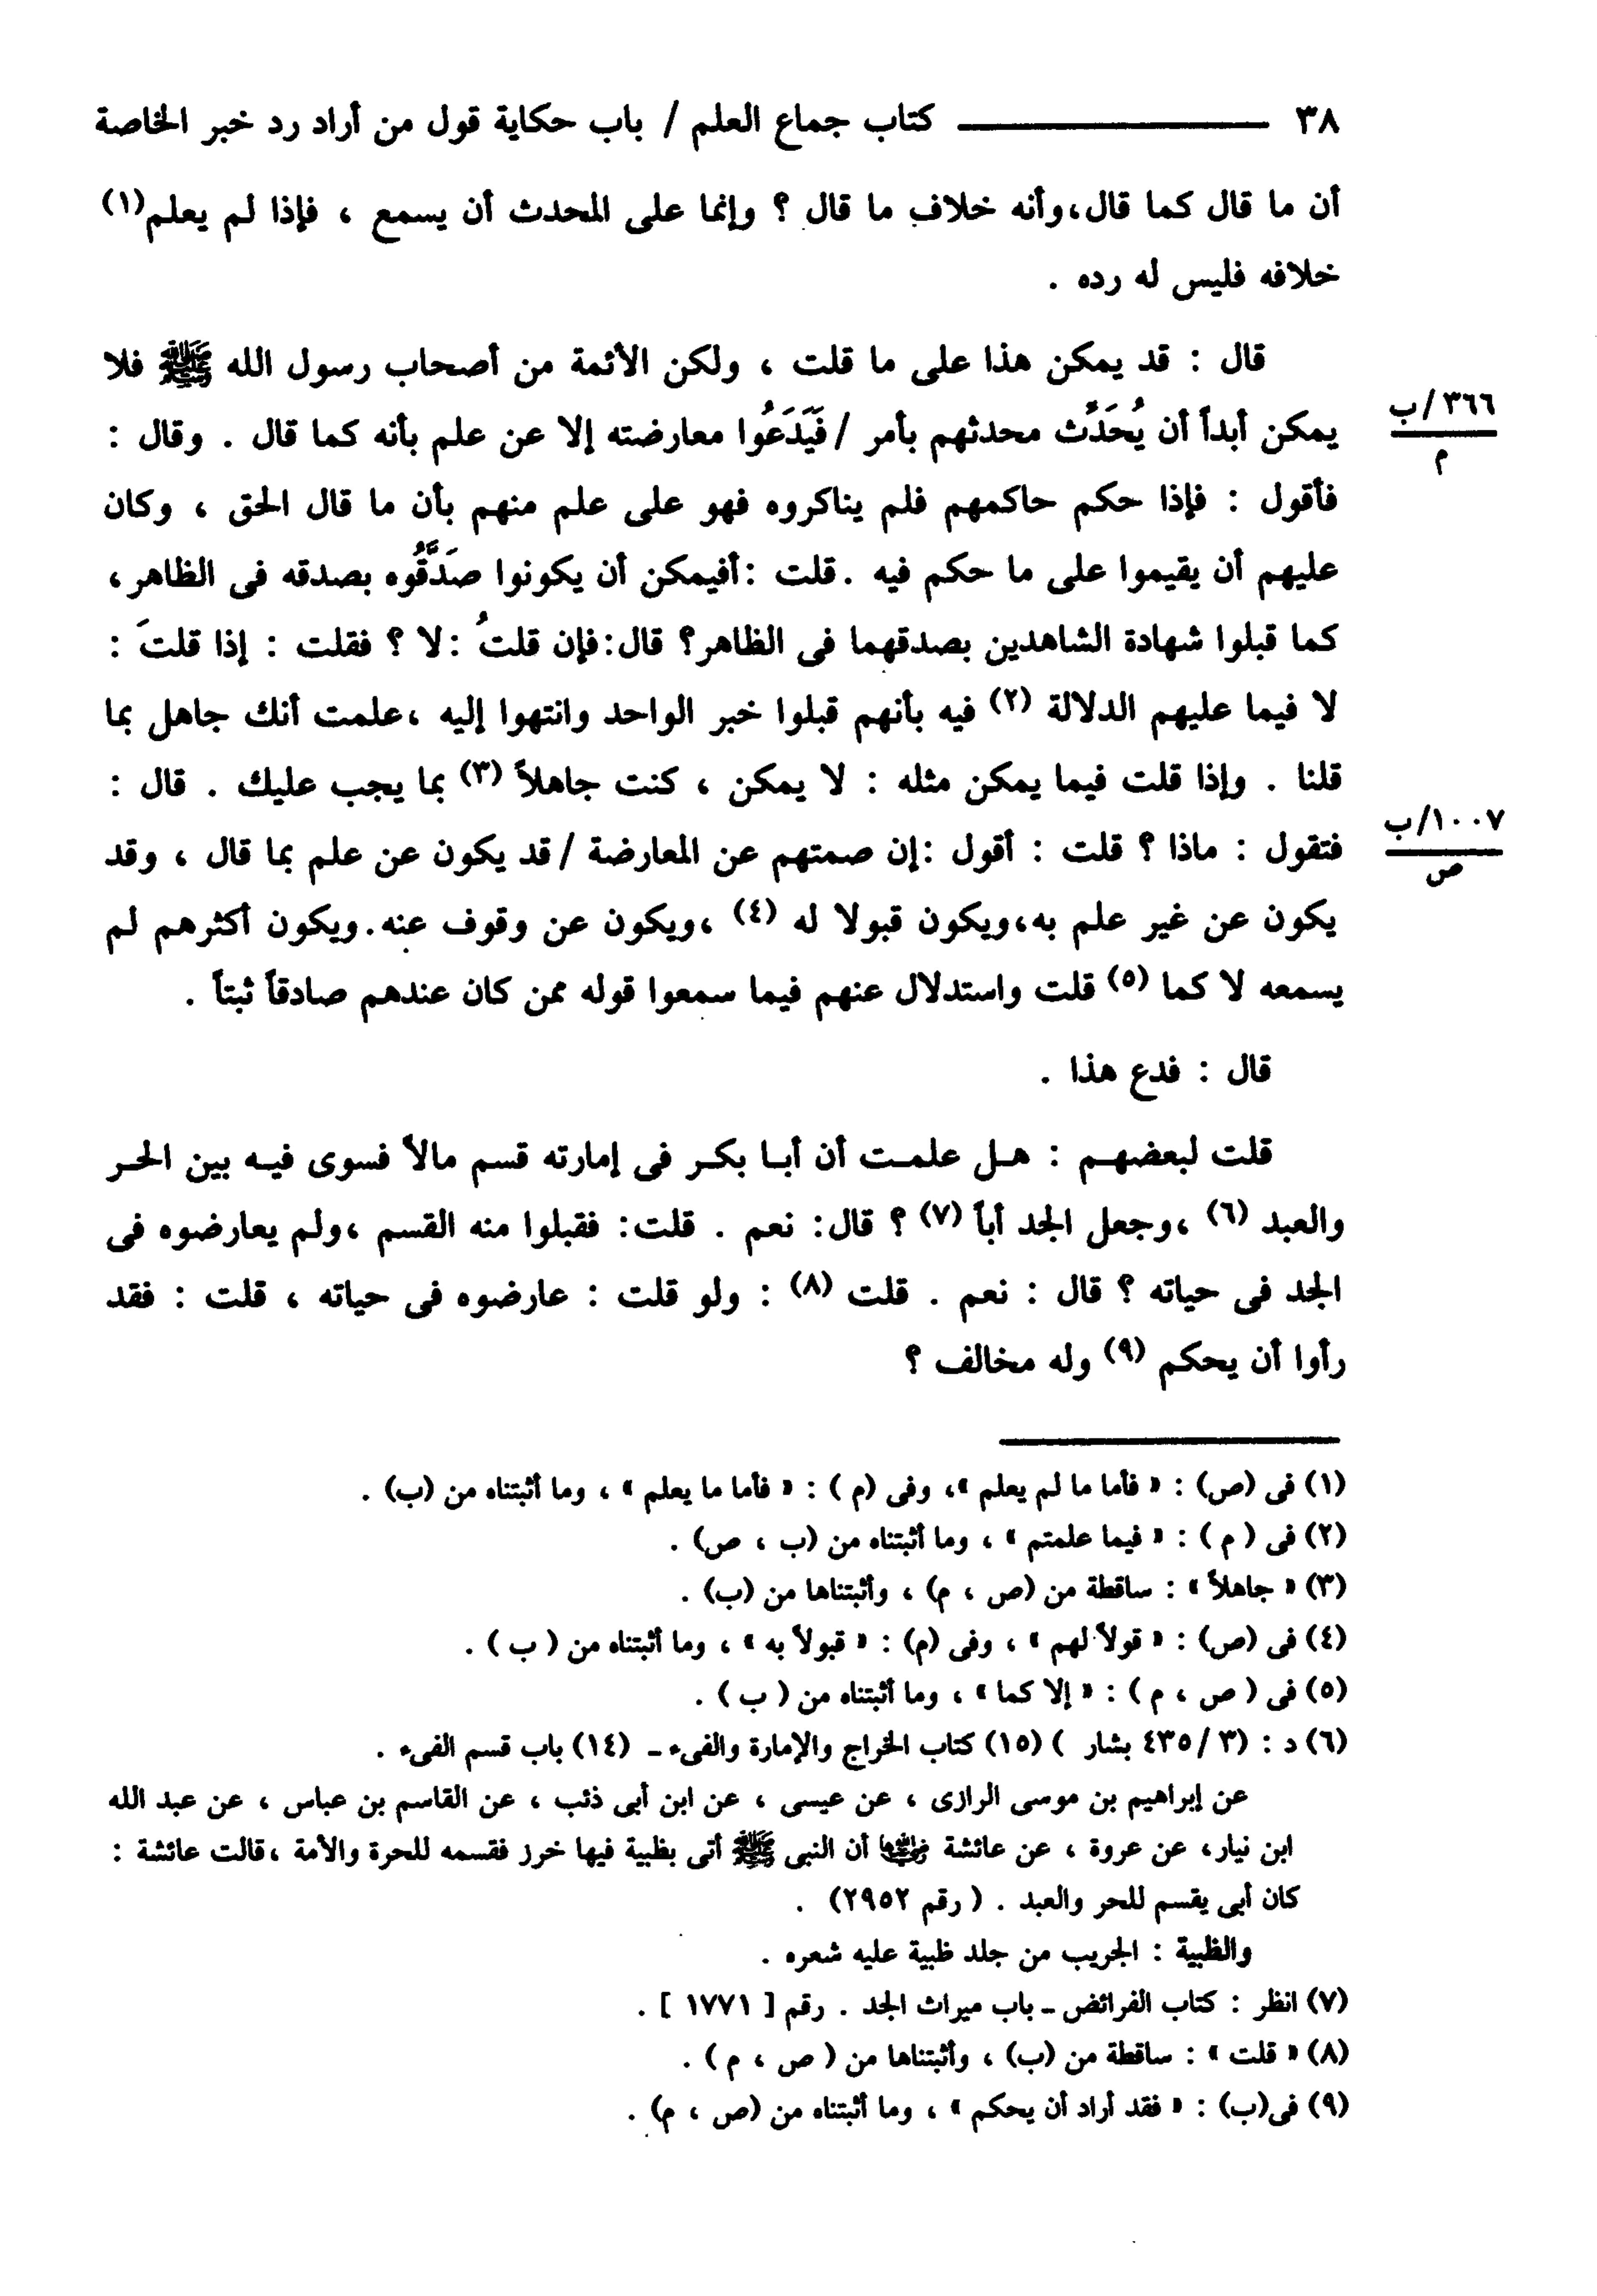 ٣٨ ــــــــــــــــ كتاب جماع العلم / باب حكاية قول من أراد رد خبر الخاصة
أن ما قال كما قال، وأنه خلاف ما قال ؟ وإنما على المحدث أن يسمع ، فإذا لم يعلم(١)
خلافه فليس له رده .
قال : قد يمكن هذا على ما قلت ، ولكن الأئمة من أصحاب رسول الله ﷺ فلا
يمكن أبداً أن يُحَدِّث محدثهم بأمر / فَيَدَعُوا معارضته إلا عن علم بأنه كما قال . وقال :
٣٦٦/ب
م
فأقول : فإذا حكم حاكمهم فلم يناكروه فهو على علم منهم بأن ما قال الحق ، وكان
عليهم أن يقيموا على ما حكم فيه . قلت : أفيمكن أن يكونوا صَدَّقُوه بصدقه فى الظاهر ،
كما قبلوا شهادة الشاهدين بصدقهما فى الظاهر؟ قال: فإن قلتُ : لا ؟ فقلت : إذا قلتَ :
لا فيما عليهم الدلالة (٢) فيه بأنهم قبلوا خبر الواحد وانتهوا إليه ، علمت أنك جاهل بما
قلنا . وإذا قلت فيما يمكن مثله : لا يمكن ، كنت جاهلاً (٣) بما يجب عليك . قال :
فتقول : ماذا ؟ قلت : أقول : إن صمتهم عن المعارضة / قد يكون عن علم بما قال ، وقد
١٠٠٧/ب
ص
يكون عن غير علم به، ويكون قبولا له (٤) ، ويكون عن وقوف عنه. ويكون أكثرهم لم
يسمعه لا كما (٥) قلت واستدلال عنهم فيما سمعوا قوله ممن كان عندهم صادقاً ثبتاً .
قال : فدع هذا .
قلت لبعضهم : هل علمت أن أبا بكر فى إمارته قسم مالاً فسوى فيه بين الحر
والعبد (٦) ، وجعل الجد أباً (٧) ؟ قال: نعم . قلت: فقبلوا منه القسم ، ولم يعارضوه فى
الجد فى حياته ؟ قال : نعم . قلت (٨) : ولو قلت : عارضوه فى حياته ، قلت : فقد
رأوا أن يحكم (٩) وله مخالف ؟
(١) فى (ص) : « فأما ما لم يعلم »، وفى (م ) : « فأما ما يعلم » ، وما أثبتناه من (ب) .
(٢) فى ( م ) : « فيما علمتم » ، وما أثبتناه من (ب ، ص) .
(٣) « جاهلاً » : ساقطة من (ص ، م) ، وأثبتناها من (ب) .
(٤) فى (ص) : « قولاً لهم » ، وفى (م) : « قبولاً به » ، وما أثبتناه من ( ب ) .
(٥) فى ( ص ، م ) : « إلا كما » ، وما أثبتناه من ( ب ) .
(٦) د : (٣/ ٤٣٥ بشار ) (١٥) كتاب الخراج والإمارة والفىء ـ (١٤) باب قسم الفىء .
عن إبراهيم بن موسى الرازى ، عن عيسى ، عن ابن أبى ذئب ، عن القاسم بن عباس ، عن عبد الله
ابن نيار، عن عروة ، عن عائشة رضي الله عنها أن النبى ﷺ أتى بظبية فيها خرز فقسمه للحرة والأمة ، قالت عائشة :
كان أبى يقسم للحر والعبد . ( رقم ٢٩٥٢) .
والظبية : الجريب من جلد ظبية عليه شعره .
(٧) انظر : كتاب الفرائض ـ باب ميراث الجد . رقم [ ١٧٧١ ] .
(٨) « قلت » : ساقطة من (ب) ، وأثبتناها من ( ص ، م ) .
(٩) فى(ب) : « فقد أراد أن يحكم » ، وما أثبتناه من (ص ، م) .